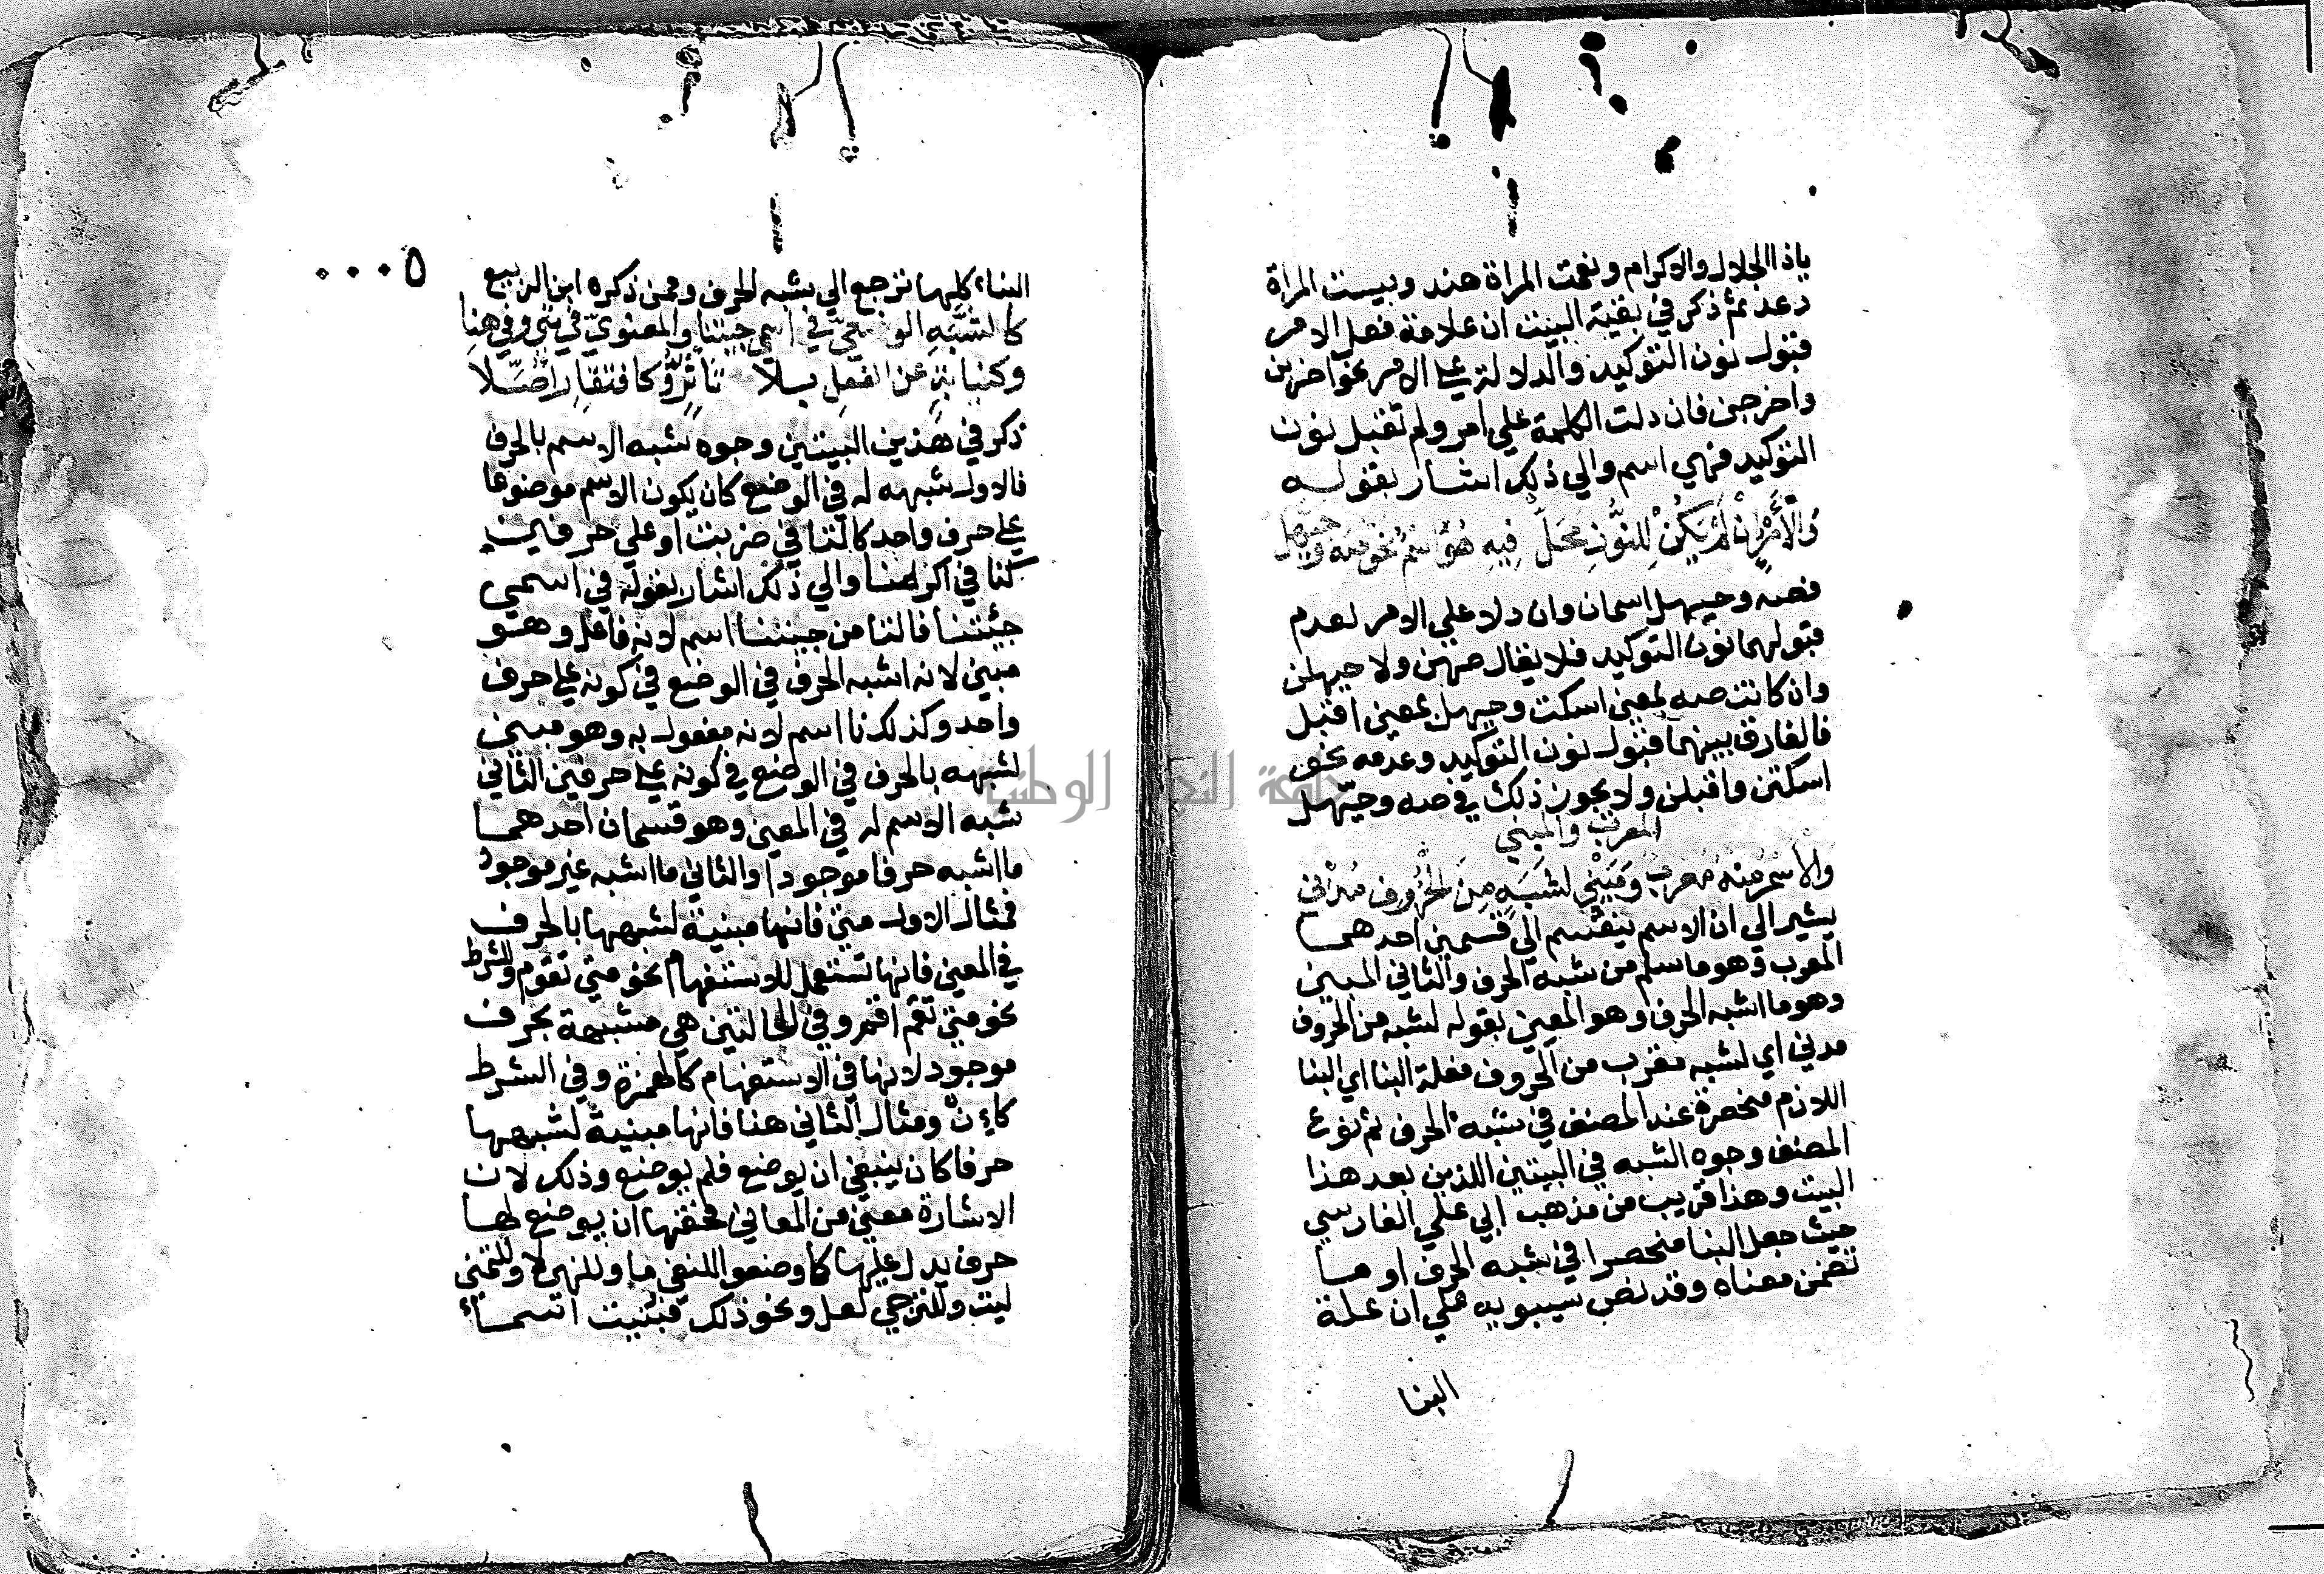 ياذا الجلال والاكرام ونعمت المراة هند وبيست المراة
دعد ثم ذكر في بقية البيت ان علامة فعل الامر
قبول نون التوكيد والدلالة علي الامر نحو اضربن
واخرجن فان دلت الكلمة علي امر ولم تقبل نون
التوكيد فهي اسم والي ذلك اشار بقوله
وَالْأَمْرُ انْ لَمْ يَكُنْ لِلنُّونِ مَحَلّ فِيهِ هُوَ اسْمٌ نَحْوُ صَه وَحَيَّهَل
فصه وحيهل اسمان وان دلا علي الامر لعدم
قبولهما نون التوكيد فلا يقال صهن ولا حيهلن
وان كانت صه بمعني اسكت وحيهل بمعني اقبل
فالفارق بينهما قبول نون التوكيد وعدمه نحو
اسكتن واقبلن ولا يجوز ذلك في صه وحيهل
المعرب والمبني
وَالِاسْمُ مِنْهُ مُعْرَبٌ وَمَبْنِي لِشَبَهٍ مِنَ الْحُرُوفِ مُدْنِي
يشير الي ان الاسم ينقسم الي قسمين احدهما
المعرب وهو ما سلم من شبه الحرف والثاني المبني
وهو ما اشبه الحرف وهو المعني بقوله لشبه من الحروف
مدني اي لشبه مقرب من الحروف فعلة البنا اي البنا
اللازم منحصرة عند المصنف في شبه الحرف ثم نوع
المصنف وجوه الشبه في البيتين اللذين بعد هذا
البيت وهذا قريب من مذهب ابي علي الفارسي
حيث جعل البنا منحصرا في شبه الحرف او ما
تضمن معناه وقد نص سيبويه علي ان علة
البنا
٠٠٠٥
البناء كلها ترجع الي شبه الحرف وممن ذكره ابن الربيع
كالشَّبَهِ الوضعيّ في اسمي جئتنا والمعنويّ في متي وفي هنا
وكنيابةٍ عن الفعل بلا تَأَثُّرٍ وكافتقارٍ أُصِّلا
ذكر في هذين البيتين وجوه شبه الاسم بالحرف
فالاول شبهه له في الوضع كان يكون الاسم موضوعا
علي حرف واحد كالتا في ضربت او علي حرفين
كنا في اكرمنا والي ذلك اشار بقوله في اسمي
جئتنا فالتا من جيتنا اسم لانه فاعل وهو
مبني لانه اشبه الحرف في الوضع في كونه علي حرف
واحد وكذلك نا اسم لانه مفعول به وهو مبني
لشبهه بالحرف في الوضع في كونه علي حرفين الثاني
شبه الاسم له في المعني وهو قسمان احدهما
ما اشبه حرفا موجودا والثاني ما اشبه غير موجود
فمثال الاول متي فانها مبنية لشبهها بالحرف
في المعني فانها تستعمل للاستفهام نحو متي تقوم وللشرط
نحو متي تقم اقم وفي الحالتين هي مشبهة بحرف
موجود لانها في الاستفهام كالهمزة وفي الشرط
كاِنْ ومثال الثاني هنا فانها مبنية لشبهها
حرفا كان ينبغي ان يوضع فلم يوضع وذلك لان
الاشارة معني من المعاني فحقها ان يوضع لها
حرف يدل عليها كما وضعوا للنفي ما وللنهي لا وللتمني
ليت وللترجي لعل ونحو ذلك فبنيت اسماء
جامعة النجاح الوطنية